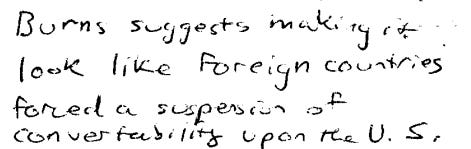 Burns suggests making it
look like foreign countries
forced a suspension of
convertability upon the U. S.